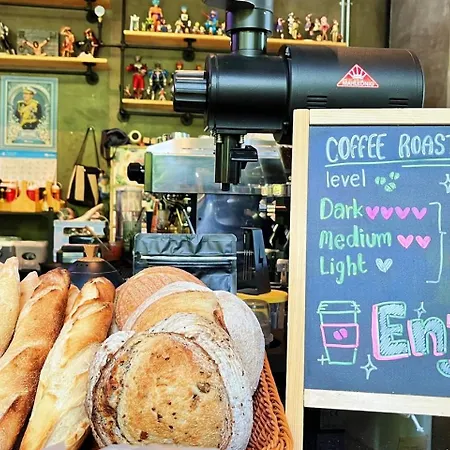 COFFEE ROAST
level
Dark
Medium
Light
Ent